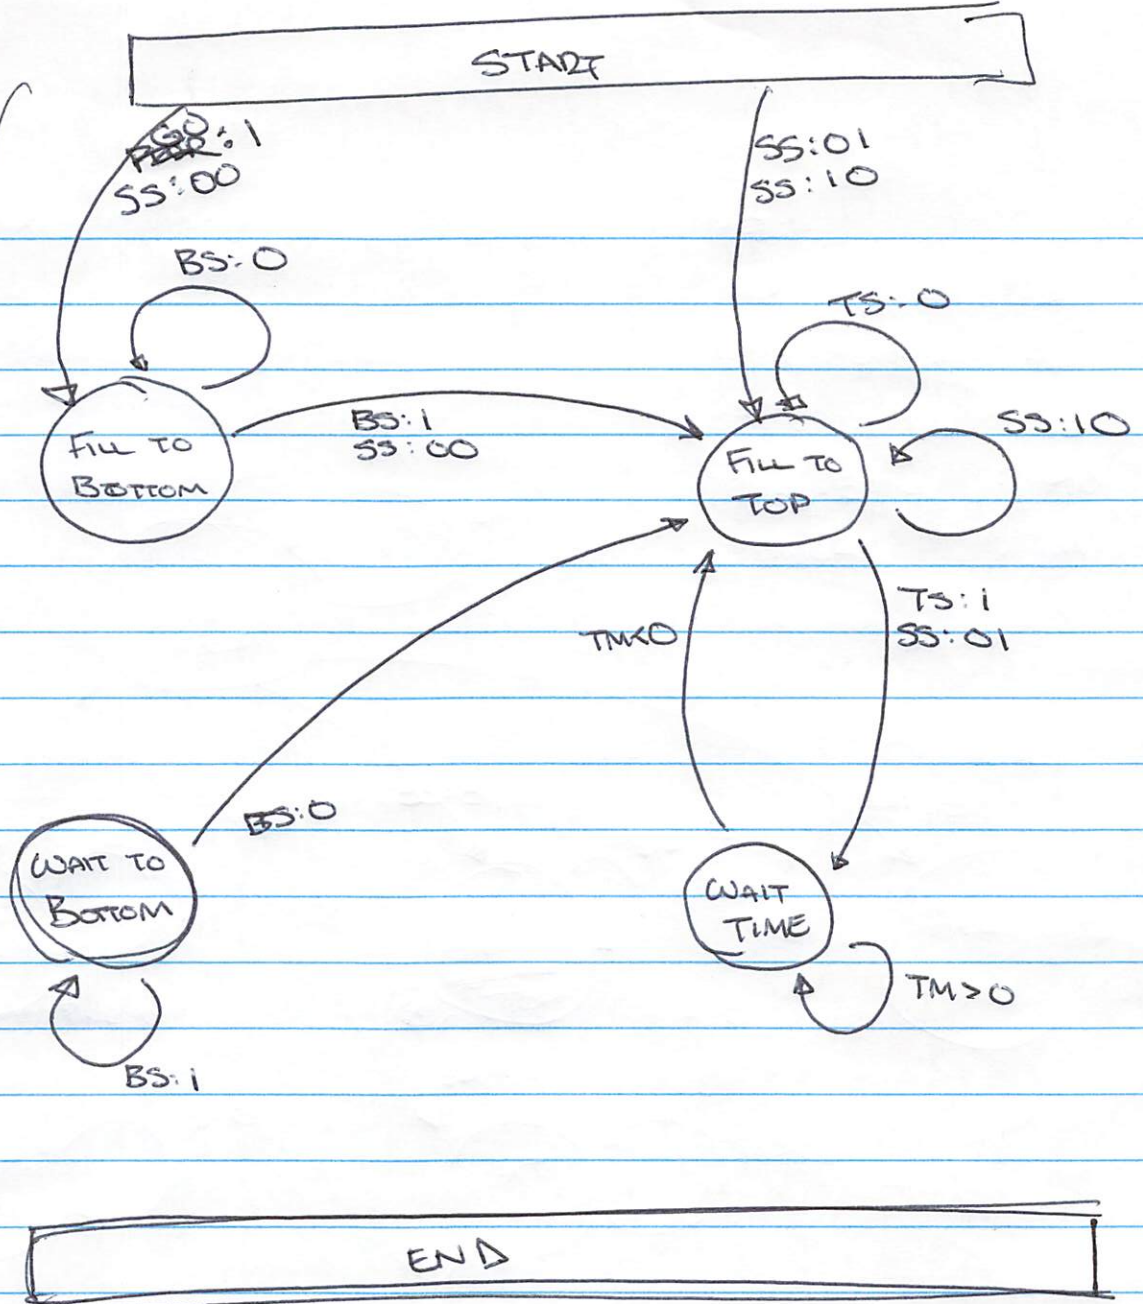 START
GO : 1
SS:00
SS:01
SS:10
BS:0
TS:0
BS:1
SS:00
SS:10
FILL TO
BOTTOM
FILL TO
TOP
TS:1
SS:01
TM<0
BS:0
WAIT TO
BOTTOM
WAIT
TIME
TM>0
BS:1
END